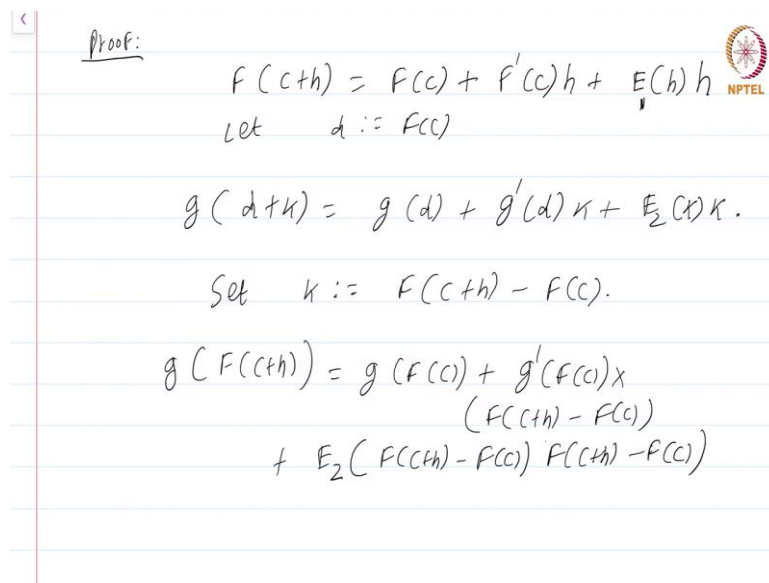 Proof:
F(c+h) = F(c) + F'(c)h + E(h)h
NPTEL
Let d := F(c)
g(d+k) = g(d) + g'(d)k + E₂(k)k.
Set k := F(c+h) - F(c).
g(F(c+h)) = g(F(c)) + g'(F(c))x
(F(c+h) - F(c))
+ E₂(F(c+h) - F(c)) F(c+h) - F(c))